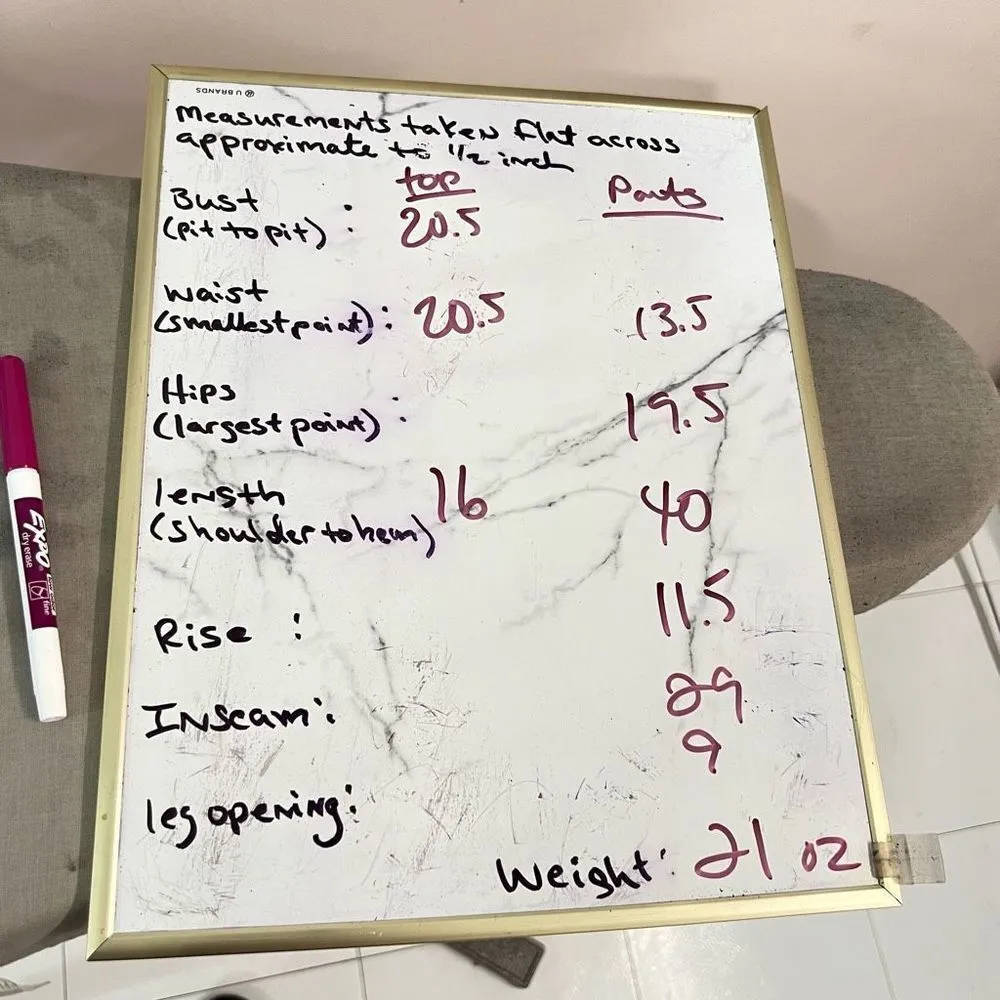 U BRANDS
Measurements taken flat across
approximate to 1/2 inch
top Pants
Bust
(pit to pit) : 20.5
Waist
(smallest point) : 20.5 13.5
Hips
(largest point) : 19.5
length 16 40
(shoulder to hem)
Rise : 11.5
Inseam : 29
9
leg opening :
Weight : 21 oz
EXPO
dry erase
fine